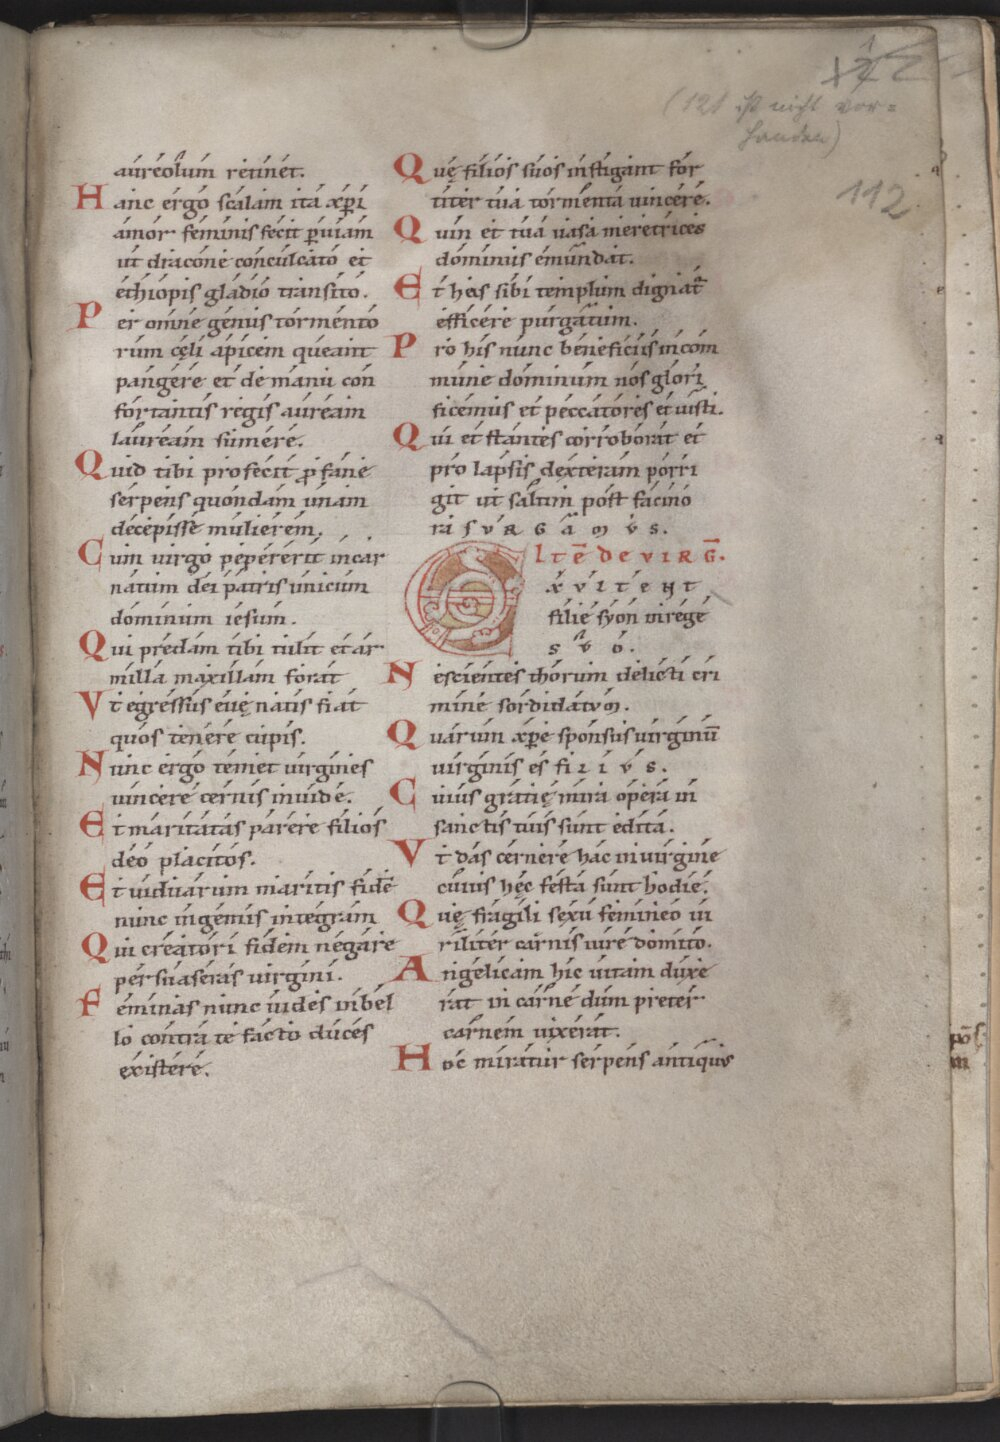 (121 ist nicht vor=
handen)
112
aureolum retinet.
Hanc ergo scalam ita xp̄i
amor feminis fecit p̱uiam
ut dracone conculcato et
ethiopis gladio transito.
Per omne genus tormento
rum cęli apicem queant
pangere et de manu con
fortantis regis auream
lauream sumere.
Quid tibi profecit ꝓfane
serpens quondam unam
decepisse mulierem.
Cum virgo pepererit incar
natum dei patris unicum
dominum iesum.
Qui predam tibi tulit et ar
milla maxillam forat
Vt egressus euę natis fiat
quos tenere cupis.
Nunc ergo temet uirgines
uincere cernis inuide.
Et maritatas parere filios
deo placitos.
Et uiduarum maritis fidē
nunc ingemis integram
Qui creatori fidem negare
persuaseras uirgini.
Feminas nunc uides inbel
lo contra te facto duces
existere.
Quę filios suos instigant for
titer tua tormenta uincere.
Quin et tua uasa meretrices
dominus emundat.
Et heis sibi templum dignat̄
efficere purgatum.
Pro his nunc beneficiis incom
mune dominum nos glori
ficemus et peccatores et iusti.
Qui et stantes corroborat et
pro lapsis dexteram porri
git ut saltim post facino
ra SVRGAMVS.
ALTĒ DE VIRḠ.
EXVLTENT
filie syon in rege
suo.
Nescientes thorum delicti cri
mine sordidatum.
Quarum xp̄e sponsus uirginū
uirginis es filius.
Cuius gratię mira opera in
sanctis tuis sunt edita.
Vt das cernere hac in uirgine
cuius hęc festa sunt hodie.
Quę fragili sexu femineo ui
riliter carnis iure domito.
Angelicam hic uitam duxe
rat in carne dum preter
carnem uixerat.
Hoc miratur serpens antiquus